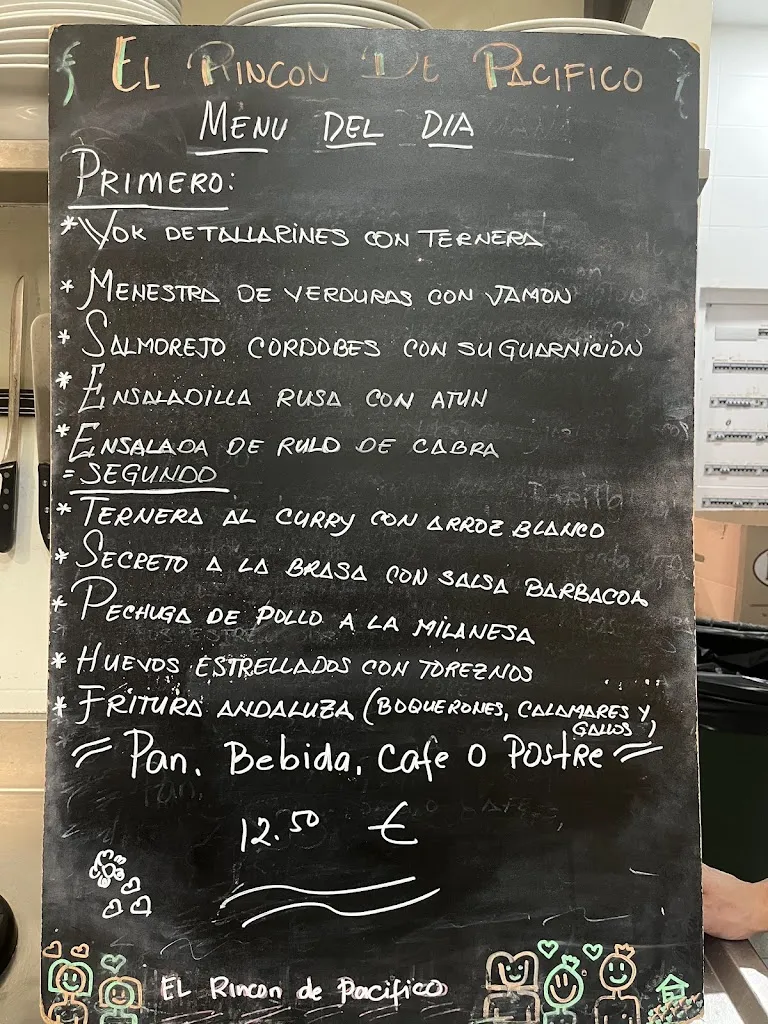 EL RINCON DE PACIFICO
MENU DEL DIA
PRIMERO:
* WOK DE TALLARINES CON TERNERA
* MENESTRA DE VERDURAS CON JAMON
* SALMOREJO CORDOBES CON SU GUARNICION
* ENSALADILLA RUSA CON ATUN
* ENSALADA DE RULO DE CABRA
= SEGUNDO
* TERNERA AL CURRY CON ARROZ BLANCO
* SECRETO A LA BRASA CON SALSA BARBACOA
* PECHUGA DE POLLO A LA MILANESA
* HUEVOS ESTRELLADOS CON TOREZNOS
* FRITURA ANDALUZA (BOQUERONES, CALAMARES Y
GALLOS)
= Pan. Bebida, Cafe O POSTRE =
12.50 €
EL Rincon de Pacifico